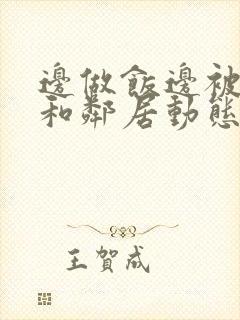 邊做飯邊被
和鄰居動態
王賀成